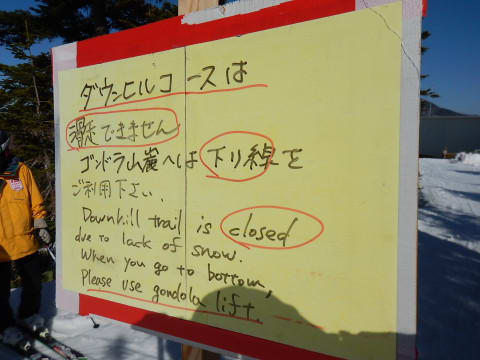 ダウンヒルコースは
滑走できません
ゴンドラ山麓へは下り線を
ご利用下さい.
Downhill trail is closed
due to lack of snow.
When you go to bottom,
Please use gondola lift.